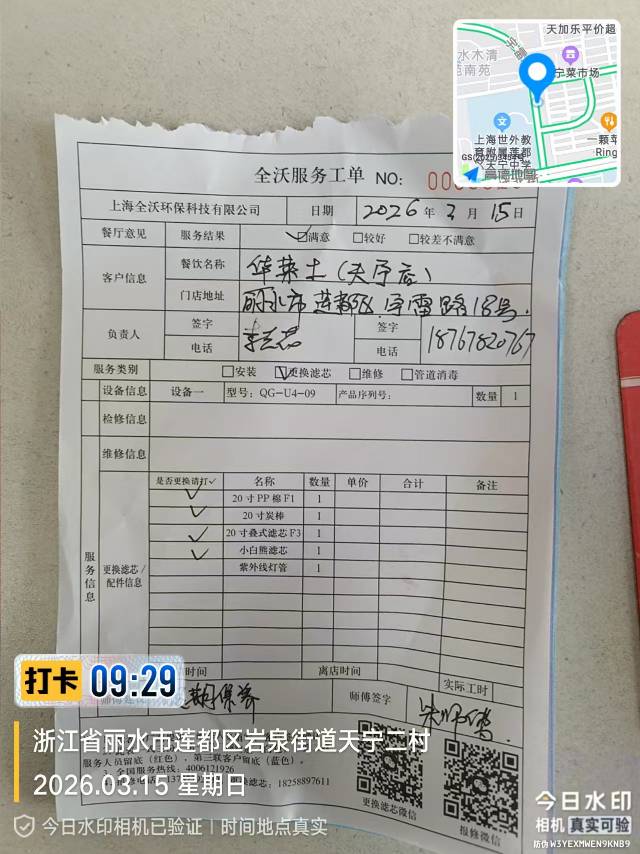 天加乐平价超
宁雷
水木清
苑南苑
宁菜市场
上海世外教
育附属莲都
天宁中学
一颗车
Ring
高德地图
全沃服务工单 NO:
上海全沃环保科技有限公司 日期 2026 年 3 月 15 日
餐厅意见 服务结果 满意 较好 较差不满意
客户信息 餐饮名称 华莱士(天宁店)
门店地址 丽水市莲都区宇雷路18号.
负责人 签字 签字
电话 电话 18767820767
服务类别 安装 更换滤芯 维修 管道消毒
设备信息 设备一 型号: QG-U4-09 产品序列号: 数量 1
检修信息
维修信息
服务信息
更换滤芯/配件信息
是否更换请打✓ 名称 数量 单价 合计 备注
✓ 20寸PP棉F1 1
✓ 20寸炭棒 1
✓ 20寸叠式滤芯F3 1
✓ 小白熊滤芯 1
紫外线灯管 1
时间 离店时间 实际工时
师傅签字
服务人员留底(红色), 第三联客户留底(蓝色)。
3、全国服务热线: 4006121926
滤芯: 18258897611
更换滤芯微信
报修微信
打卡 09:29
浙江省丽水市莲都区岩泉街道天宁二村
2026.03.15 星期日
今日水印相机已验证 | 时间地点真实
今日水印
相机 真实可验
防伪 W3YEXMWEN9KNB9